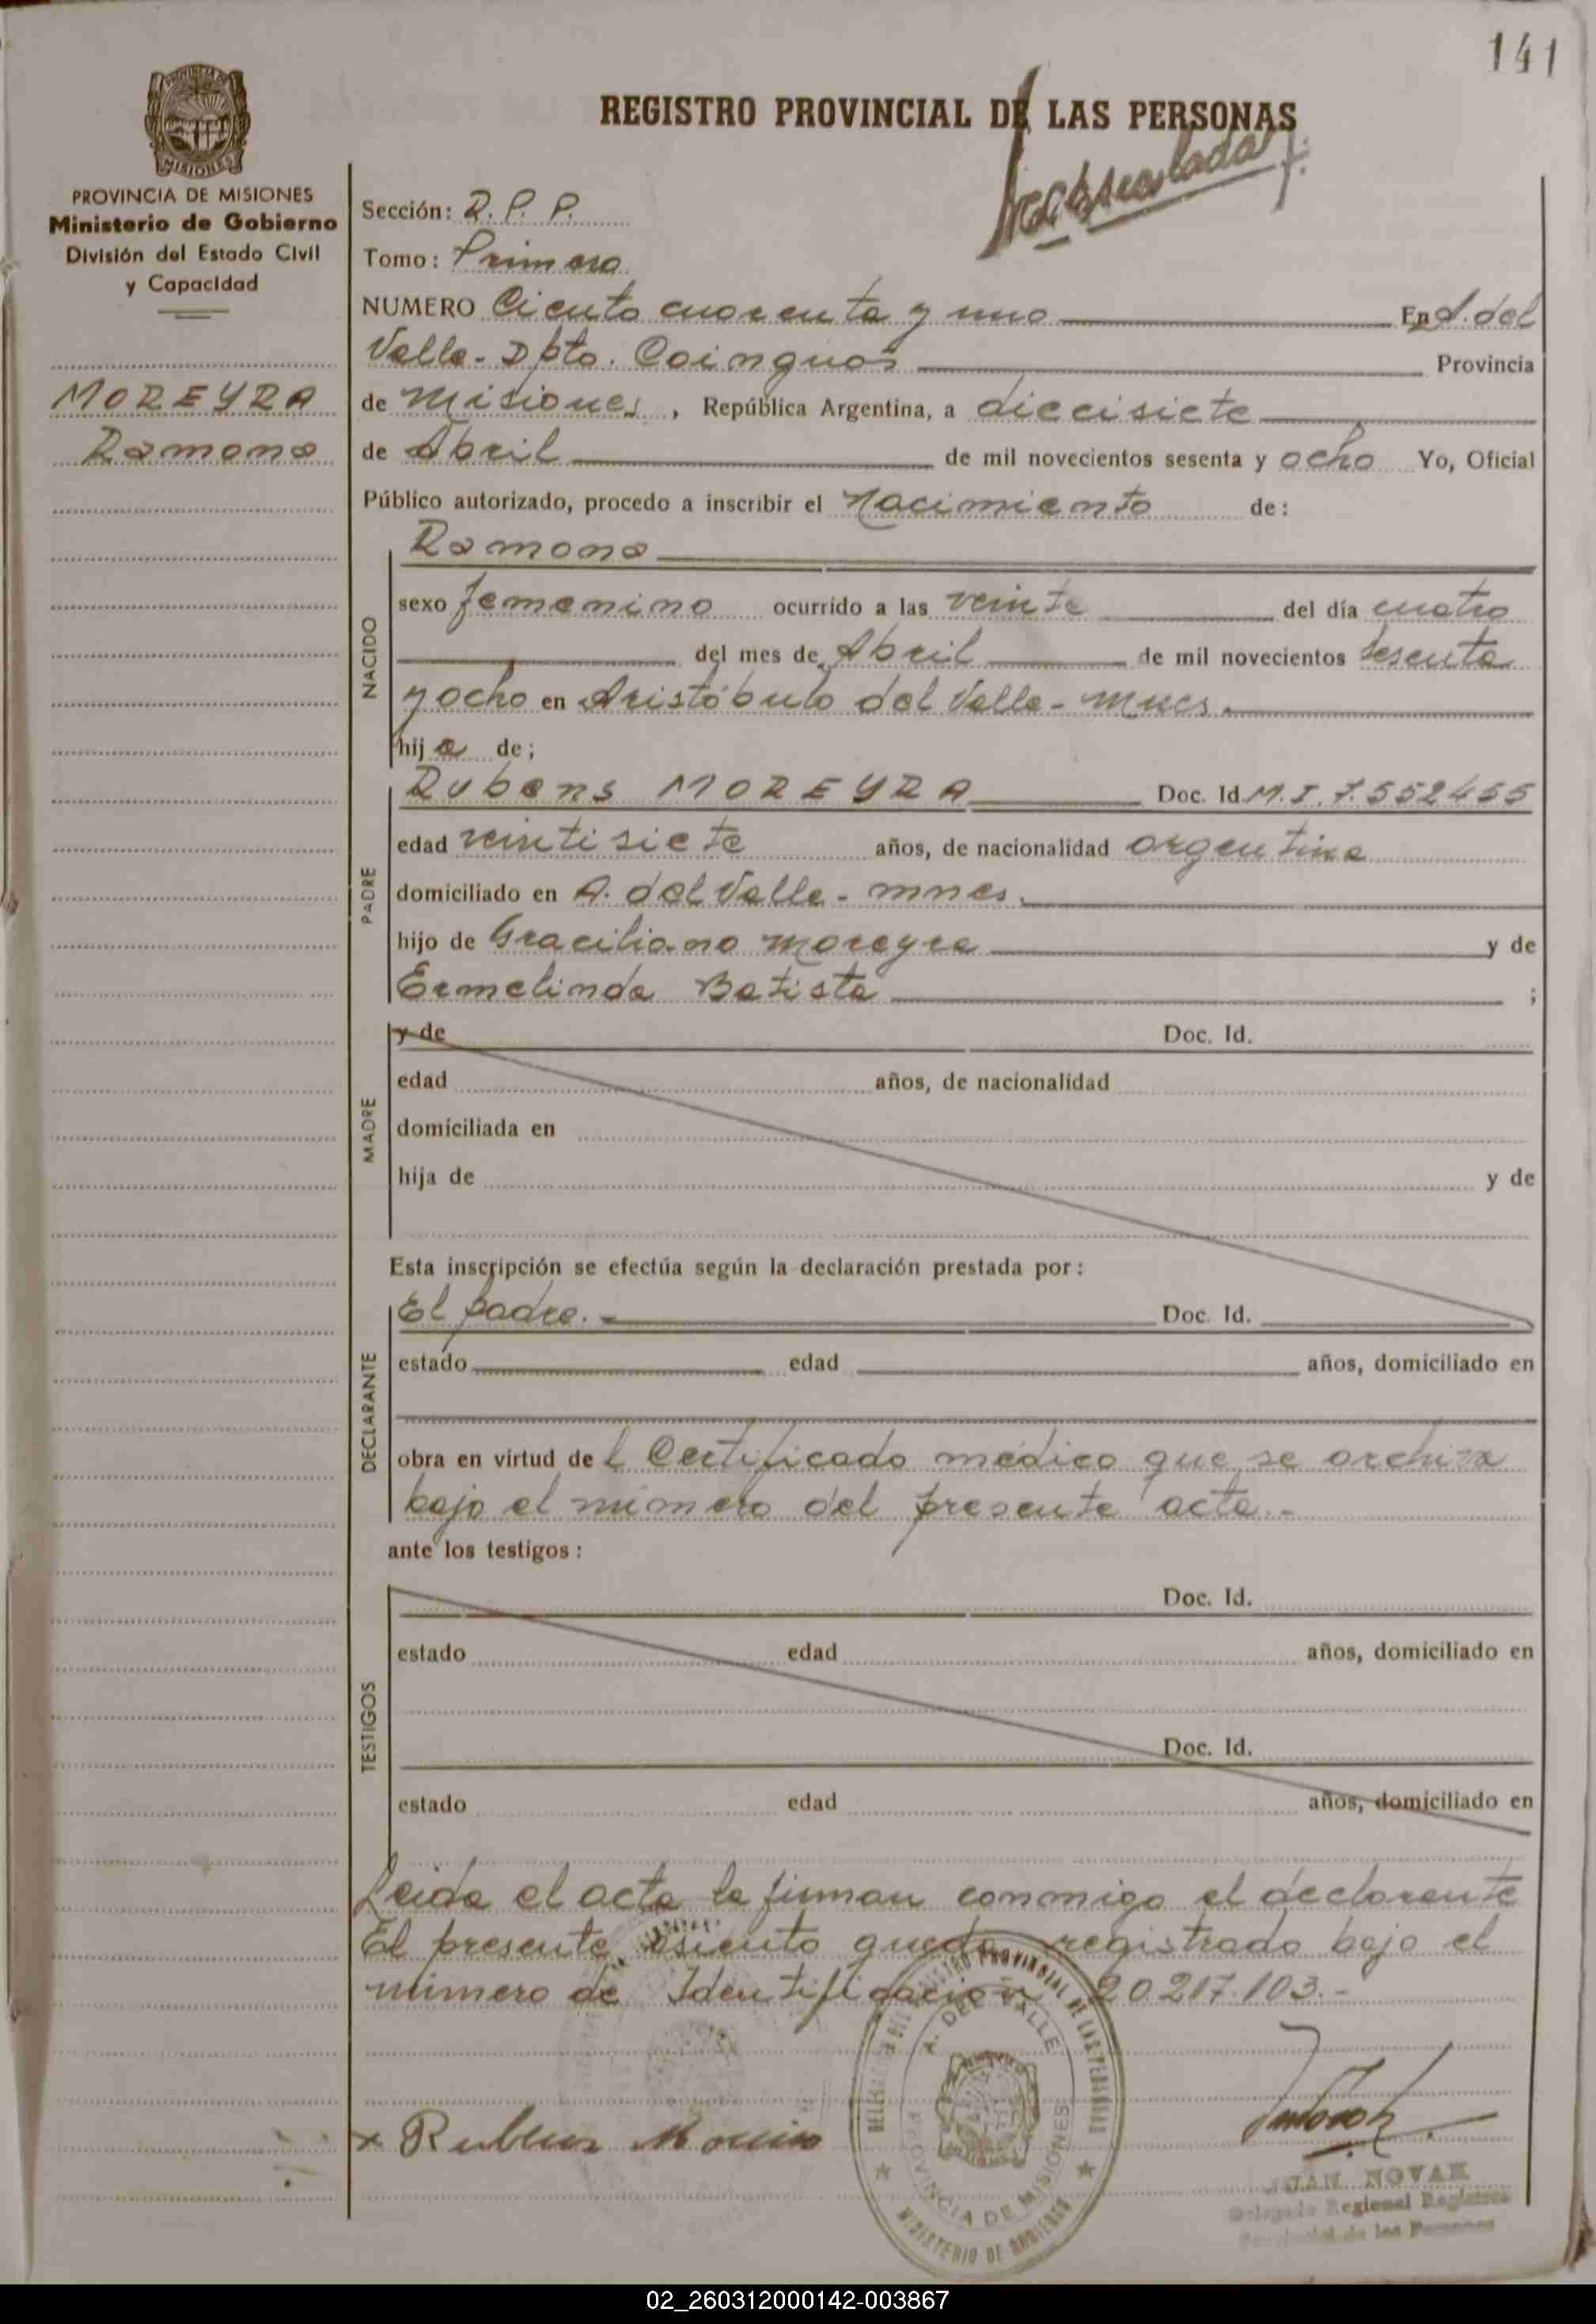 141
PROVINCIA DE
MISIONES
PROVINCIA DE MISIONES
Ministerio de Gobierno
División del Estado Civil
y Capacidad
MOREYRA
Ramona
REGISTRO PROVINCIAL DE LAS PERSONAS
Sección: R. P. P.
Tomo: Primero
NUMERO Ciento cuarenta y uno En A. del
Valle - Dpto. Cainguás Provincia
de Misiones, República Argentina, a diecisiete
de Abril de mil novecientos sesenta y ocho Yo, Oficial
Público autorizado, procedo a inscribir el Nacimiento de:
NACIDO
Ramona
sexo femenino ocurrido a las veinte del día cuatro
del mes de Abril de mil novecientos sesenta
y ocho en Aristóbulo del Valle - Mnes.
hija de;
PADRE
Rubens MOREYRA Doc. Id. M.I. 7.552455
edad veintisiete años, de nacionalidad argentina
domiciliado en A. del Valle - mnes.
hijo de Graciliano Moreyra y de
Ermelinda Batista ;
MADRE
y de Doc. Id.
edad años, de nacionalidad
domiciliada en
hija de y de
Esta inscripción se efectúa según la declaración prestada por:
DECLARANTE
El padre. - Doc. Id.
estado edad años, domiciliado en
obra en virtud del Certificado médico que se archiva
bajo el número del presente acta. -
ante los testigos:
TESTIGOS
Doc. Id.
estado edad años, domiciliado en
Doc. Id.
estado edad años, domiciliado en
Leida el acta la firman conmigo el declarante
El presente asiento queda registrado bajo el
número de Identificación 20.217.103.-
x Rubens
REGISTRO PROVINCIAL DE LAS PERSONAS
A. DEL VALLE
PROVINCIA DE MISIONES
MINISTERIO DE GOBIERNO
JUAN NOVAK
Delegado Regional Registro
Provincial de las Personas
02_260312000142-003867